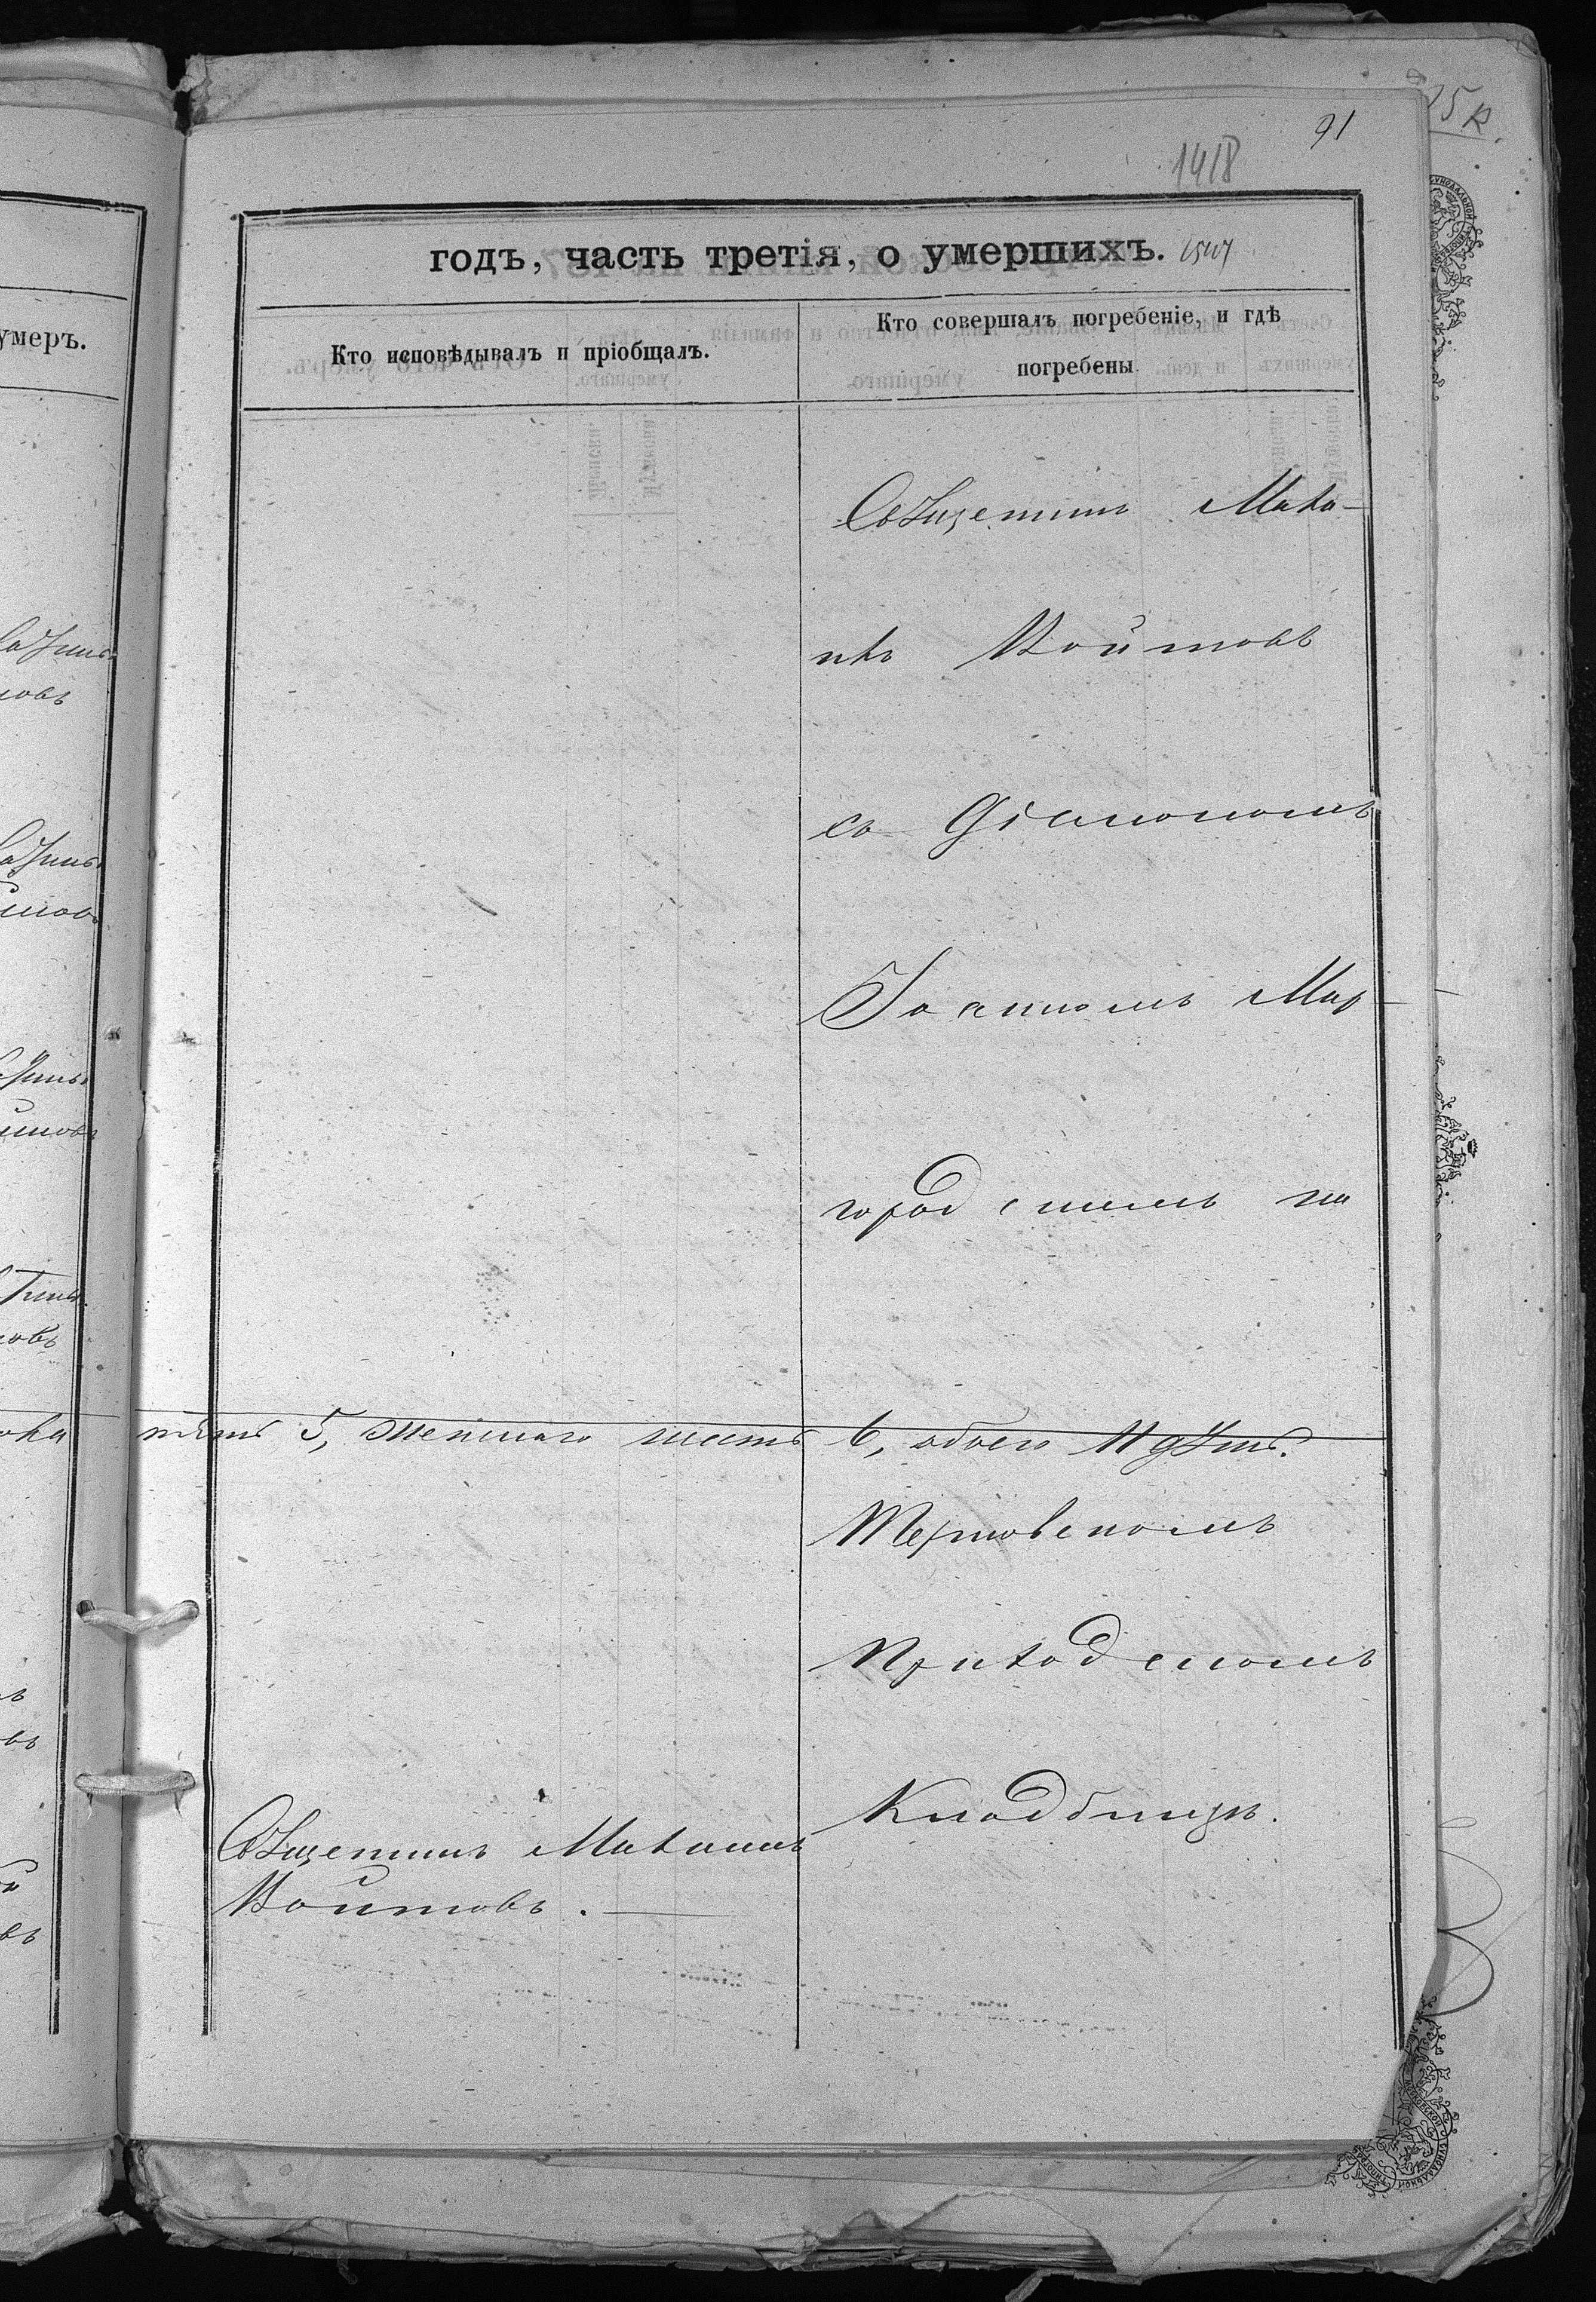 91
1418
годъ, часть третія, о умершихъ.
умеръ.
Кто исповѣдывалъ и пріобщалъ.
Кто совершалъ погребеніе, и гдѣ
погребены
Священникъ Миха-
илъ Войтовъ
съ Діакономъ
Іоанномъ Мир-
городскимъ на
пять 5, женскаго шесть 6, обоего 11 душъ.
Терновскомъ
Приходскомъ
Кладбищѣ.
Священникъ Михаилъ
Войтовъ.